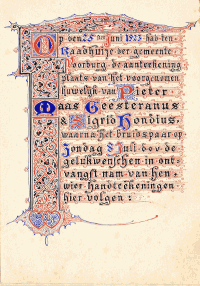 Op den 25sten Juni 1923 had ten
Raadhuize der gemeente
Voorburg de aanteekening
plaats van het voorgenomen
huwelijk van Pieter
Maas Geesteranus
& Sigrid Hondius,
waarna het bruidspaar op
Zondag 8 Juli d.o.v. de
gelukwenschen in ont-
vangst nam van hen,
wier handteekeningen
hier volgen: